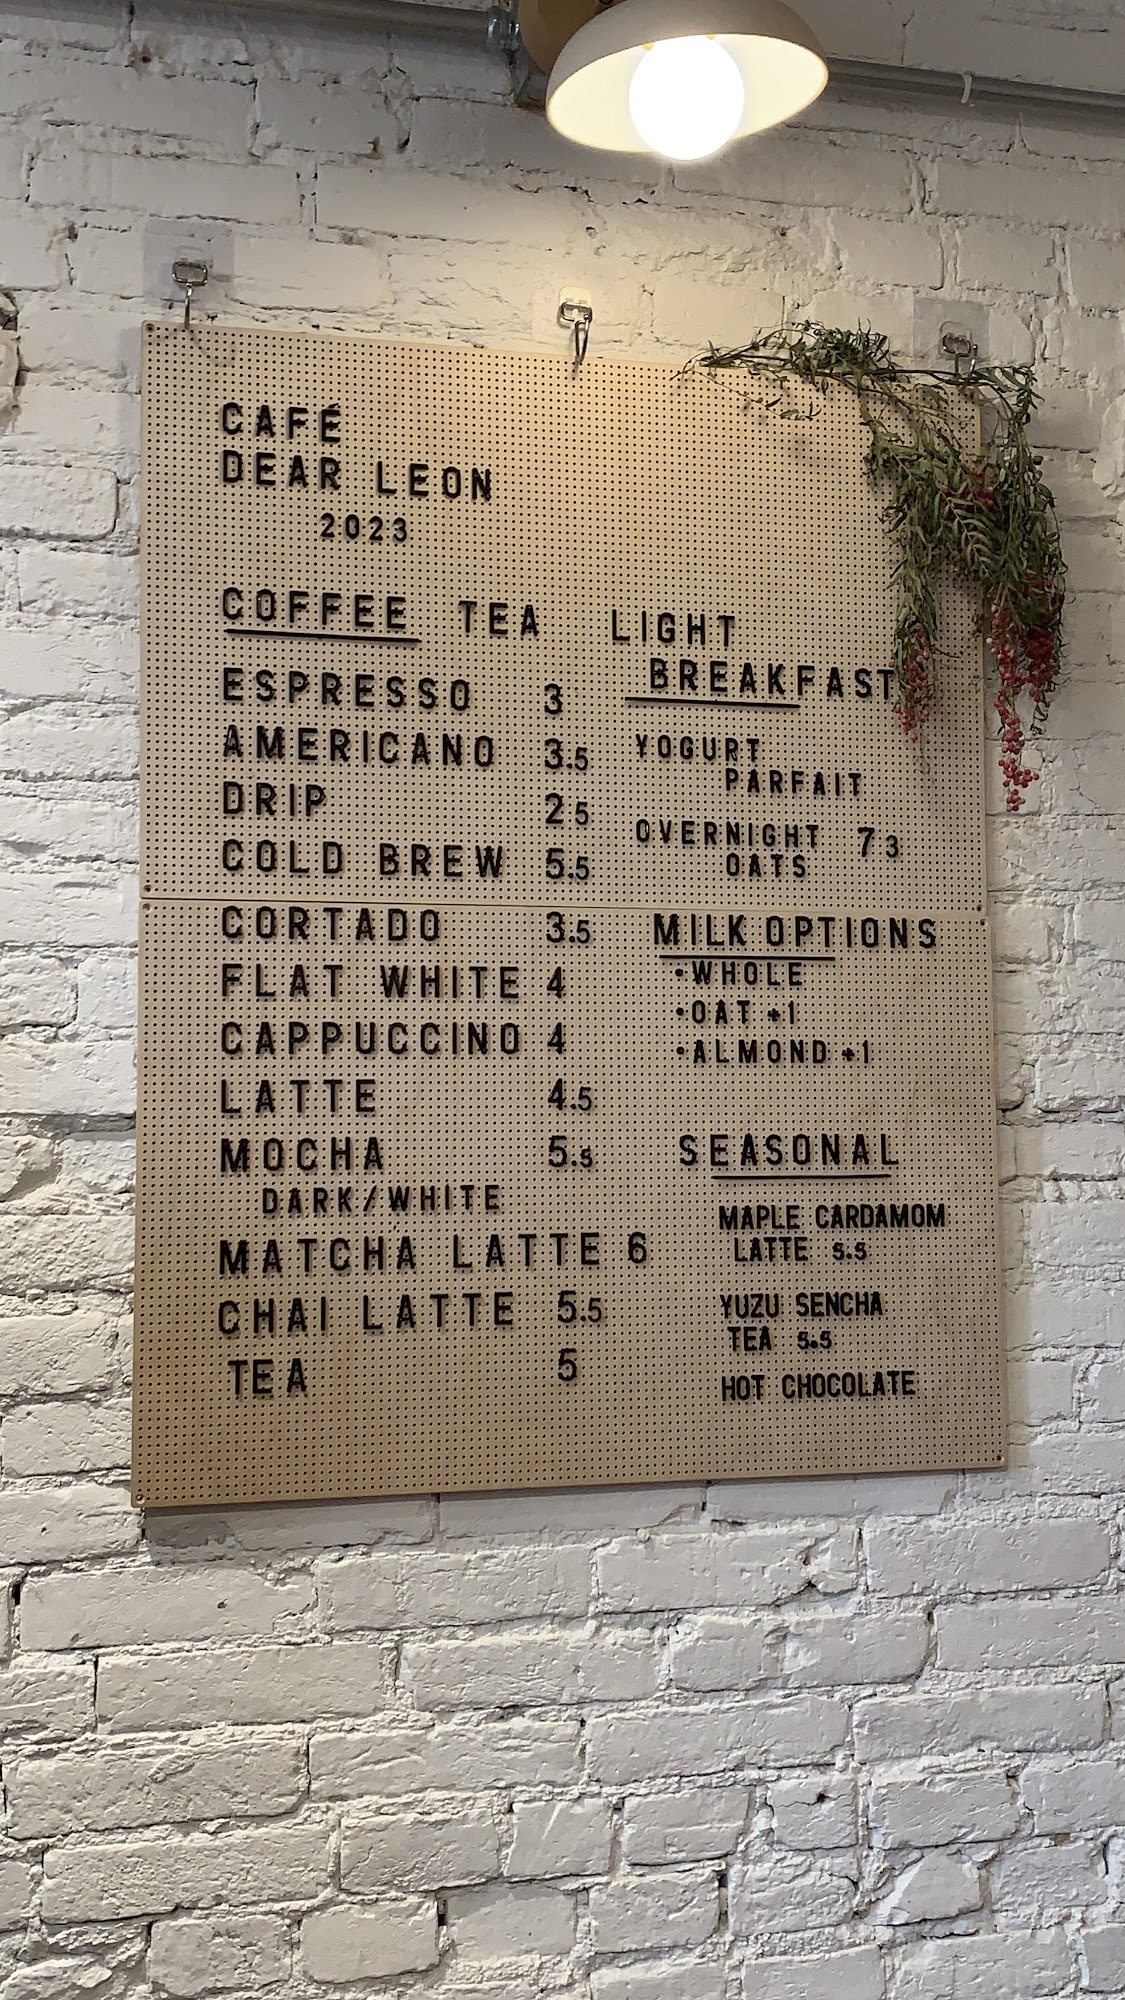 CAFÉ
DEAR LEON
2023
COFFEE TEA
ESPRESSO 3
AMERICANO 3.5
DRIP 2 5
COLD BREW 5.5
CORTADO 3.5
FLAT WHITE 4
CAPPUCCINO 4
LATTE 4.5
MOCHA 5.5
DARK/WHITE
MATCHA LATTE 6
CHAI LATTE 5.5
TEA 5
LIGHT
BREAKFAST
YOGURT
PARFAIT
OVERNIGHT 7 3
OATS
MILK OPTIONS
•WHOLE
•OAT +1
•ALMOND +1
SEASONAL
MAPLE CARDAMOM
LATTE 5.5
YUZU SENCHA
TEA 5.5
HOT CHOCOLATE